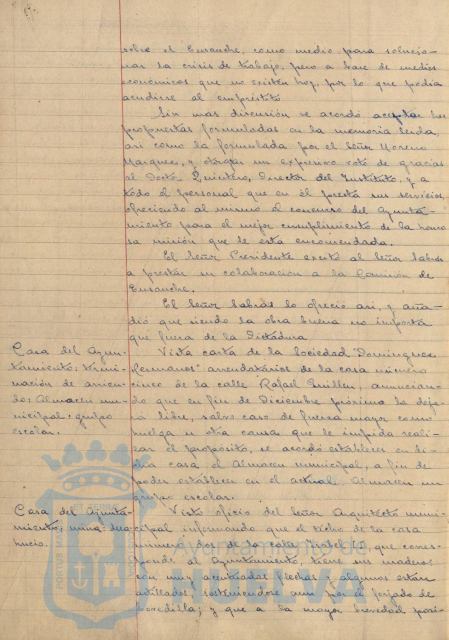 sobre el Ensanche, como medio para solucio-
nar la crisis de trabajo, pero a base de medios
económicos que no existen hoy, por lo que podía
acudirse al empréstito
Sin más discusión se acordó aceptar las
propuestas formuladas en la memoria leída,
así como la formulada por el Señor Moreno
Marquez, y otorgar un expresivo voto de gracias
al Doctor Quintero, Director del Instituto, y a
todo el personal que en él presta sus servicios,
ofreciendo al mismo el concurso del Ayunta-
miento para el mejor cumplimiento de la
sa misión que le está encomendada.
El Señor Presidente excitó al Señor Sabrás
a prestar su colaboración a la Comisión de
Ensanche.
El Señor Sabrás lo ofreció así, y aña-
dió que siendo la obra buena no importa
que fuera de la Dictadura.
Casa del Ayun-
tamiento: termi-
nación de arrien-
do: Almacen mu-
nicipal: grupo
escolar.
Vista carta de la Sociedad "Dominguez
Hermanos" arrendatarios de la casa número
cinco de la calle Rafael Guillen, anuncian-
do que en fin de Diciembre próximo la deja-
libre, salvo caso de fuerza mayor como
huelga u otra causa que le impida reali-
zar el propósito, se acordó establecer en di-
cha casa el Almacen municipal, a fin de
poder establecer en el actual Almacen un
grupo escolar.
Casa del Ayunta-
miento;
Visto oficio del Señor Arquitecto muni-
cipal informando que el techo de la casa
número dos de la calle Isabel II, que corres-
ponde al Ayuntamiento, tiene sus maderos
con muy acentuadas flechas y algunos están
astillados, sosteniéndose aun por el forjado de
bovedilla; y que a la mayor brevedad posi-
Ayuntamiento de
HUELVA
PORTUS